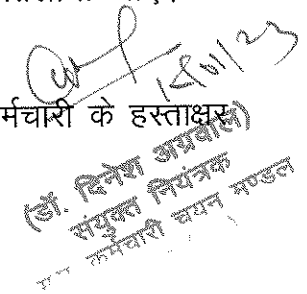 18/01/23
र्मचारी के हस्ताक्षर
(डॉ. दिनेश अग्रवाल)
संयुक्त नियंत्रक
कर्मचारी चयन मण्डल